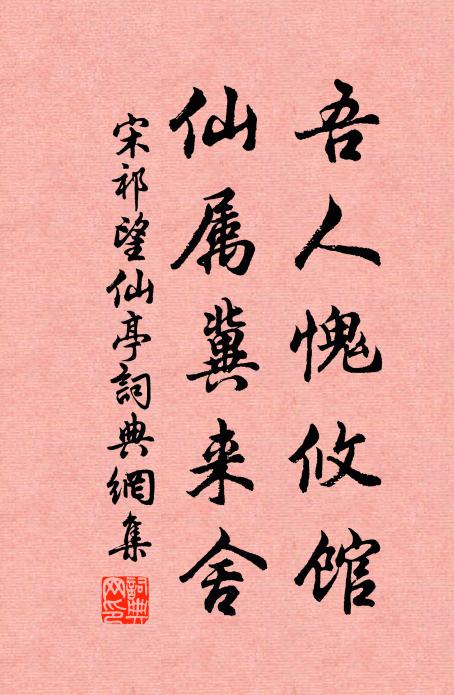 吾人愧攸馆
仙属冀来舍
宋祁望仙亭詞典網集
詞典網印